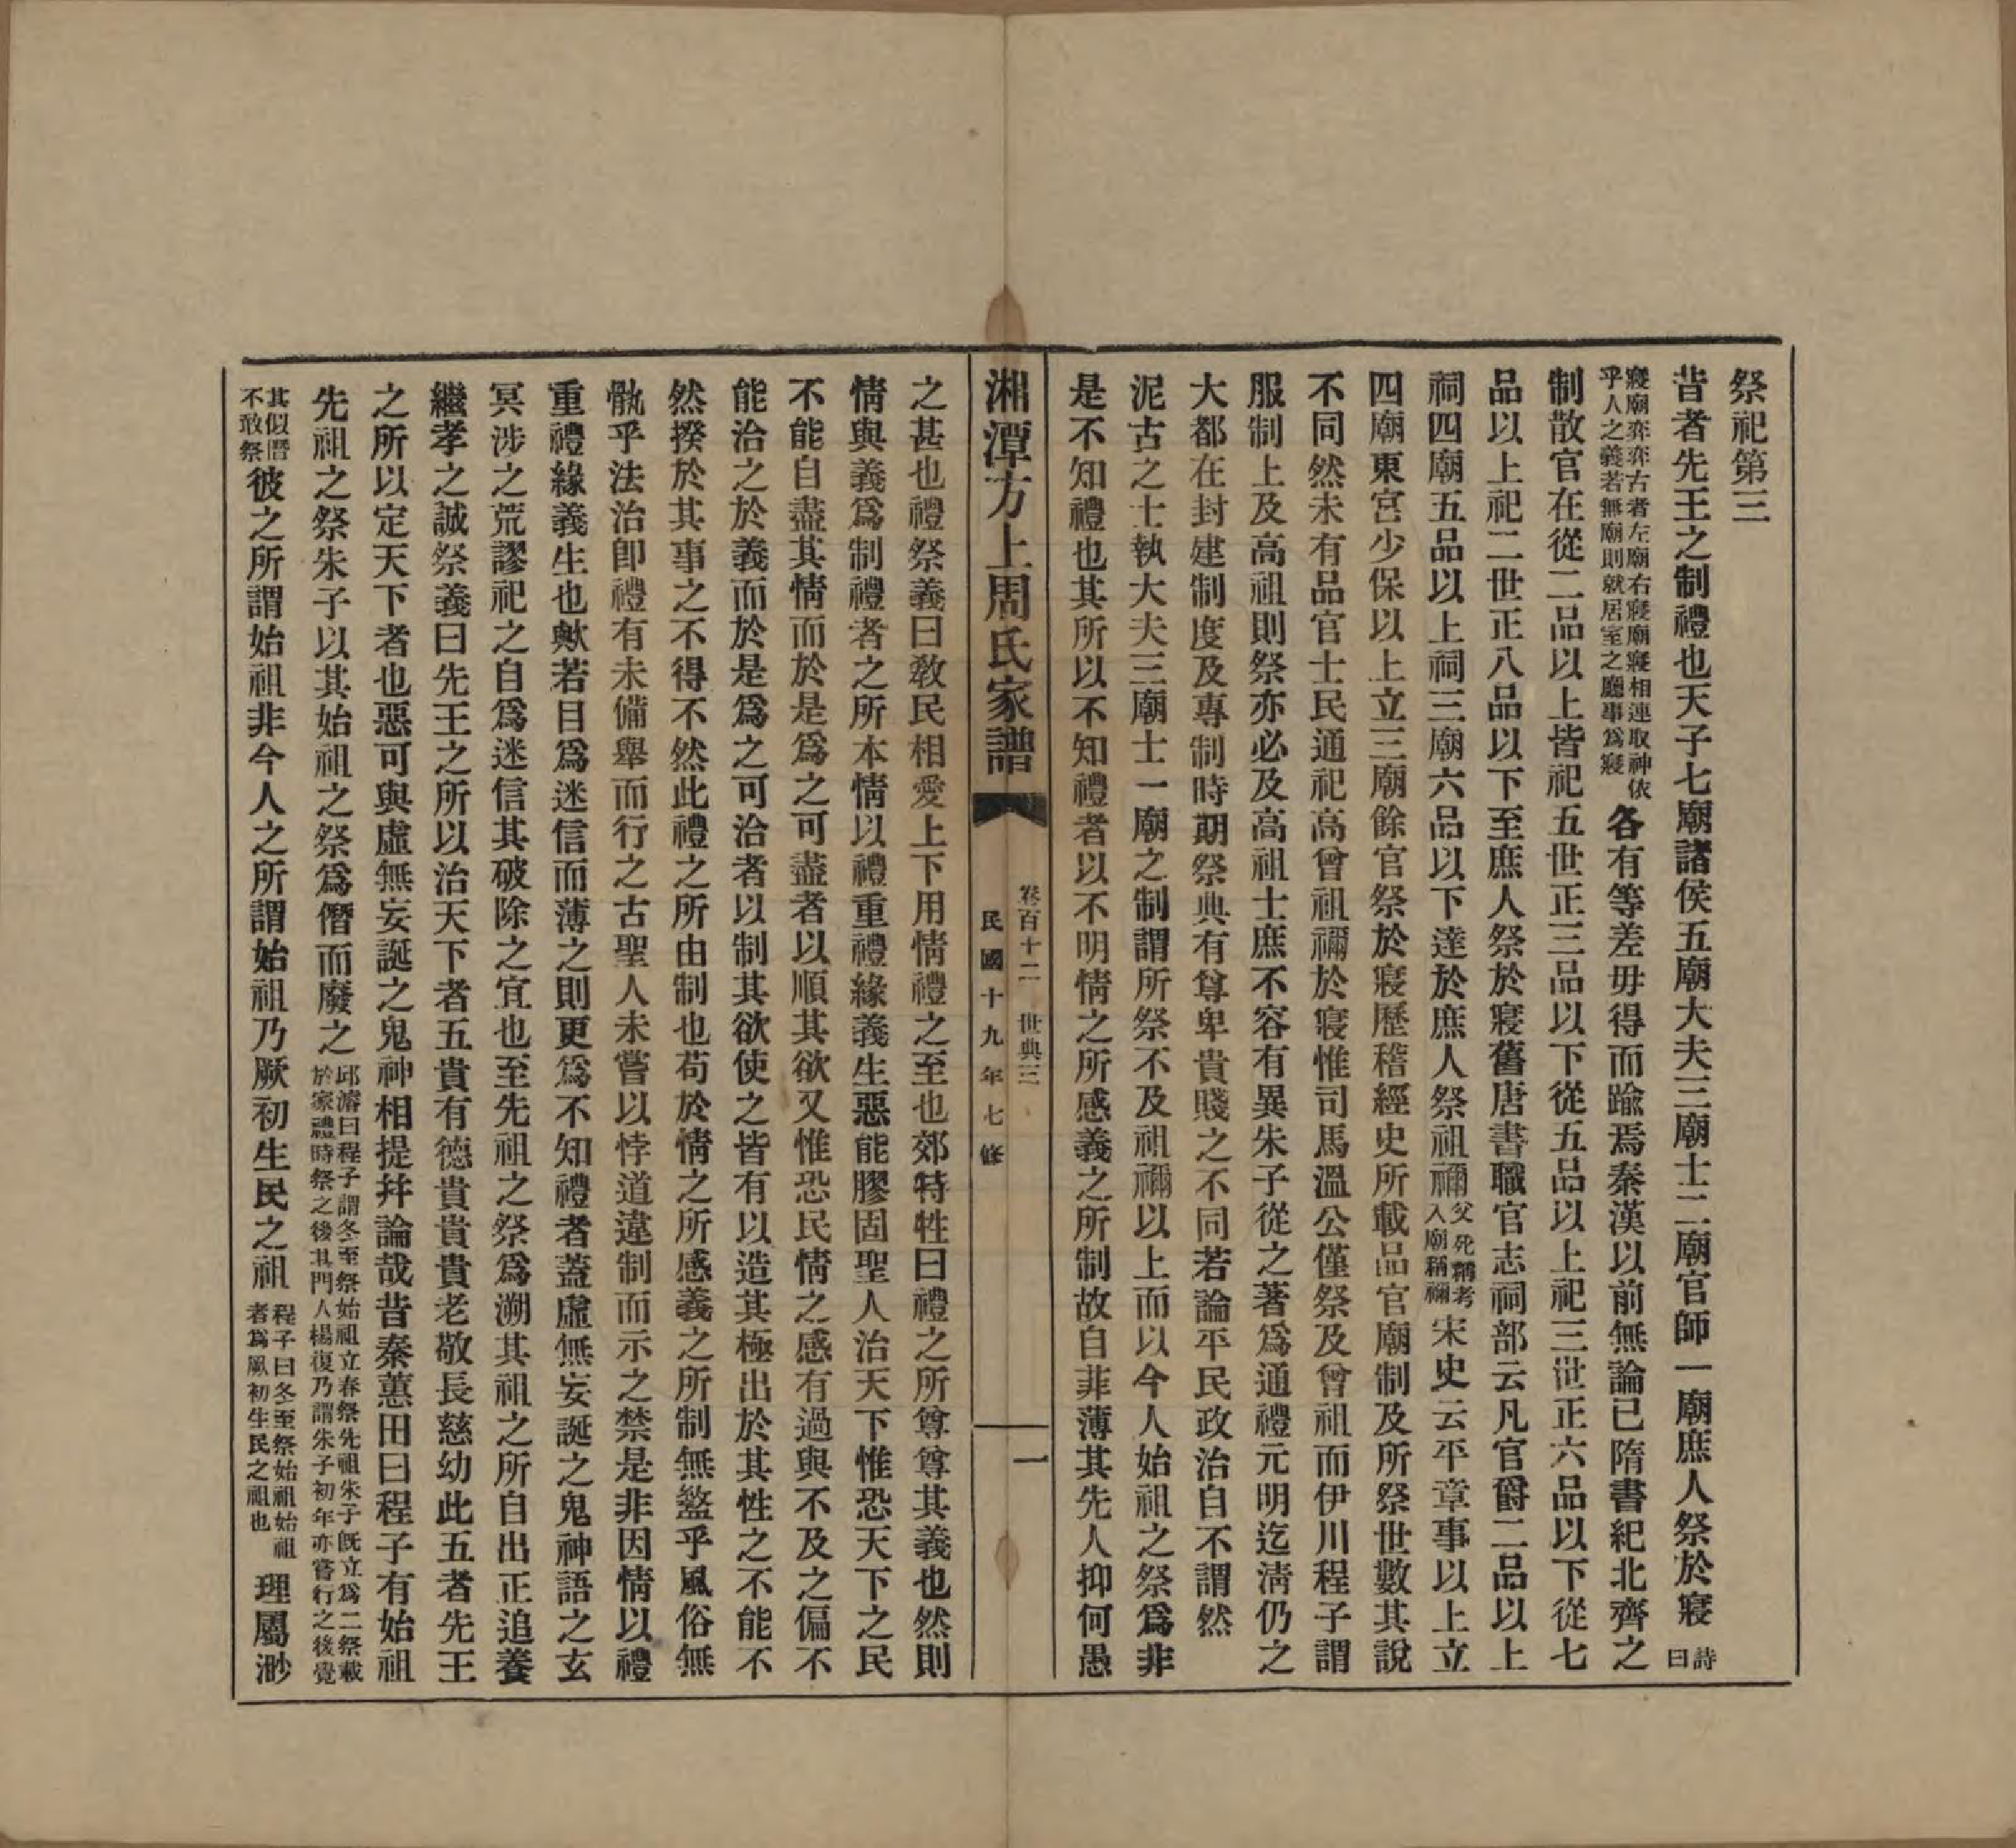 祭祀第三
昔者先王之制禮也天子七廟諸侯五廟大夫三廟士二廟官師一廟庶人祭於寢詩曰
寢廟弈弈古者左廟右寢廟寢相連取神依乎人之義若無廟則就居室之廳事爲寢各有等差毋得而踰焉秦漢以前無論已隋書紀北齊之
制散官在從二品以上皆祀五世正三品以下從五品以上祀三世正六品以下從七
品以上祀二世正八品以下至庶人祭於寢舊唐書職官志祠部云凡官爵二品以上
祠四廟五品以上祠三廟六品以下達於庶人祭祖禰父死稱考入廟稱禰宋史云平章事以上立
四廟東宮少保以上立三廟餘官祭於寢歷稽經史所載品官廟制及所祭世數其說
不同然未有品官士民通祀高曾祖禰於寢惟司馬溫公僅祭及曾祖而伊川程子謂
服制上及高祖則祭亦必及高祖士庶不容有異朱子從之著爲通禮元明迄淸仍之
大都在封建制度及專制時期祭典有尊卑貴賤之不同若論平民政治自不謂然
泥古之士執大夫三廟士一廟之制謂所祭不及祖禰以上而以今人始祖之祭爲非
是不知禮也其所以不知禮者以不明情之所感義之所制故自菲薄其先人抑何愚
湘潭方上周氏家譜
卷百十二 世典三
民國十九年七修
一
之甚也禮祭義曰敎民相愛上下用情禮之至也郊特牲曰禮之所尊尊其義也然則
情與義爲制禮者之所本情以禮重禮緣義生惡能膠固聖人治天下惟恐天下之民
不能自盡其情而於是爲之可盡者以順其欲又惟恐民情之感有過與不及之偏不
能洽之於義而於是爲之可洽者以制其欲使之皆有以造其極出於其性之不能不
然揆於其事之不得不然此禮之所由制也苟於情之所感義之所制無盭乎風俗無
骫乎法治卽禮有未備舉而行之古聖人未嘗以悖道違制而示之禁是非因情以禮
重禮緣義生也歟若目爲迷信而薄之則更爲不知禮者蓋虛無妄誕之鬼神語之玄
冥涉之荒謬祀之自爲迷信其破除之宜也至先祖之祭爲溯其祖之所自出正追養
繼孝之誠祭義曰先王之所以治天下者五貴有德貴貴貴老敬長慈幼此五者先王
之所以定天下者也惡可與虛無妄誕之鬼神相提幷論哉昔秦蕙田曰程子有始祖
先祖之祭朱子以其始祖之祭爲僭而廢之邱濬曰程子謂冬至祭始祖立春祭先祖朱子旣立爲二祭載於家禮時祭之後其門人楊復乃謂朱子初年亦嘗行之後覺
其似僭不敢祭彼之所謂始祖非今人之所謂始祖乃厥初生民之祖程子曰冬至祭始祖始祖者爲厥初生民之祖也理屬渺